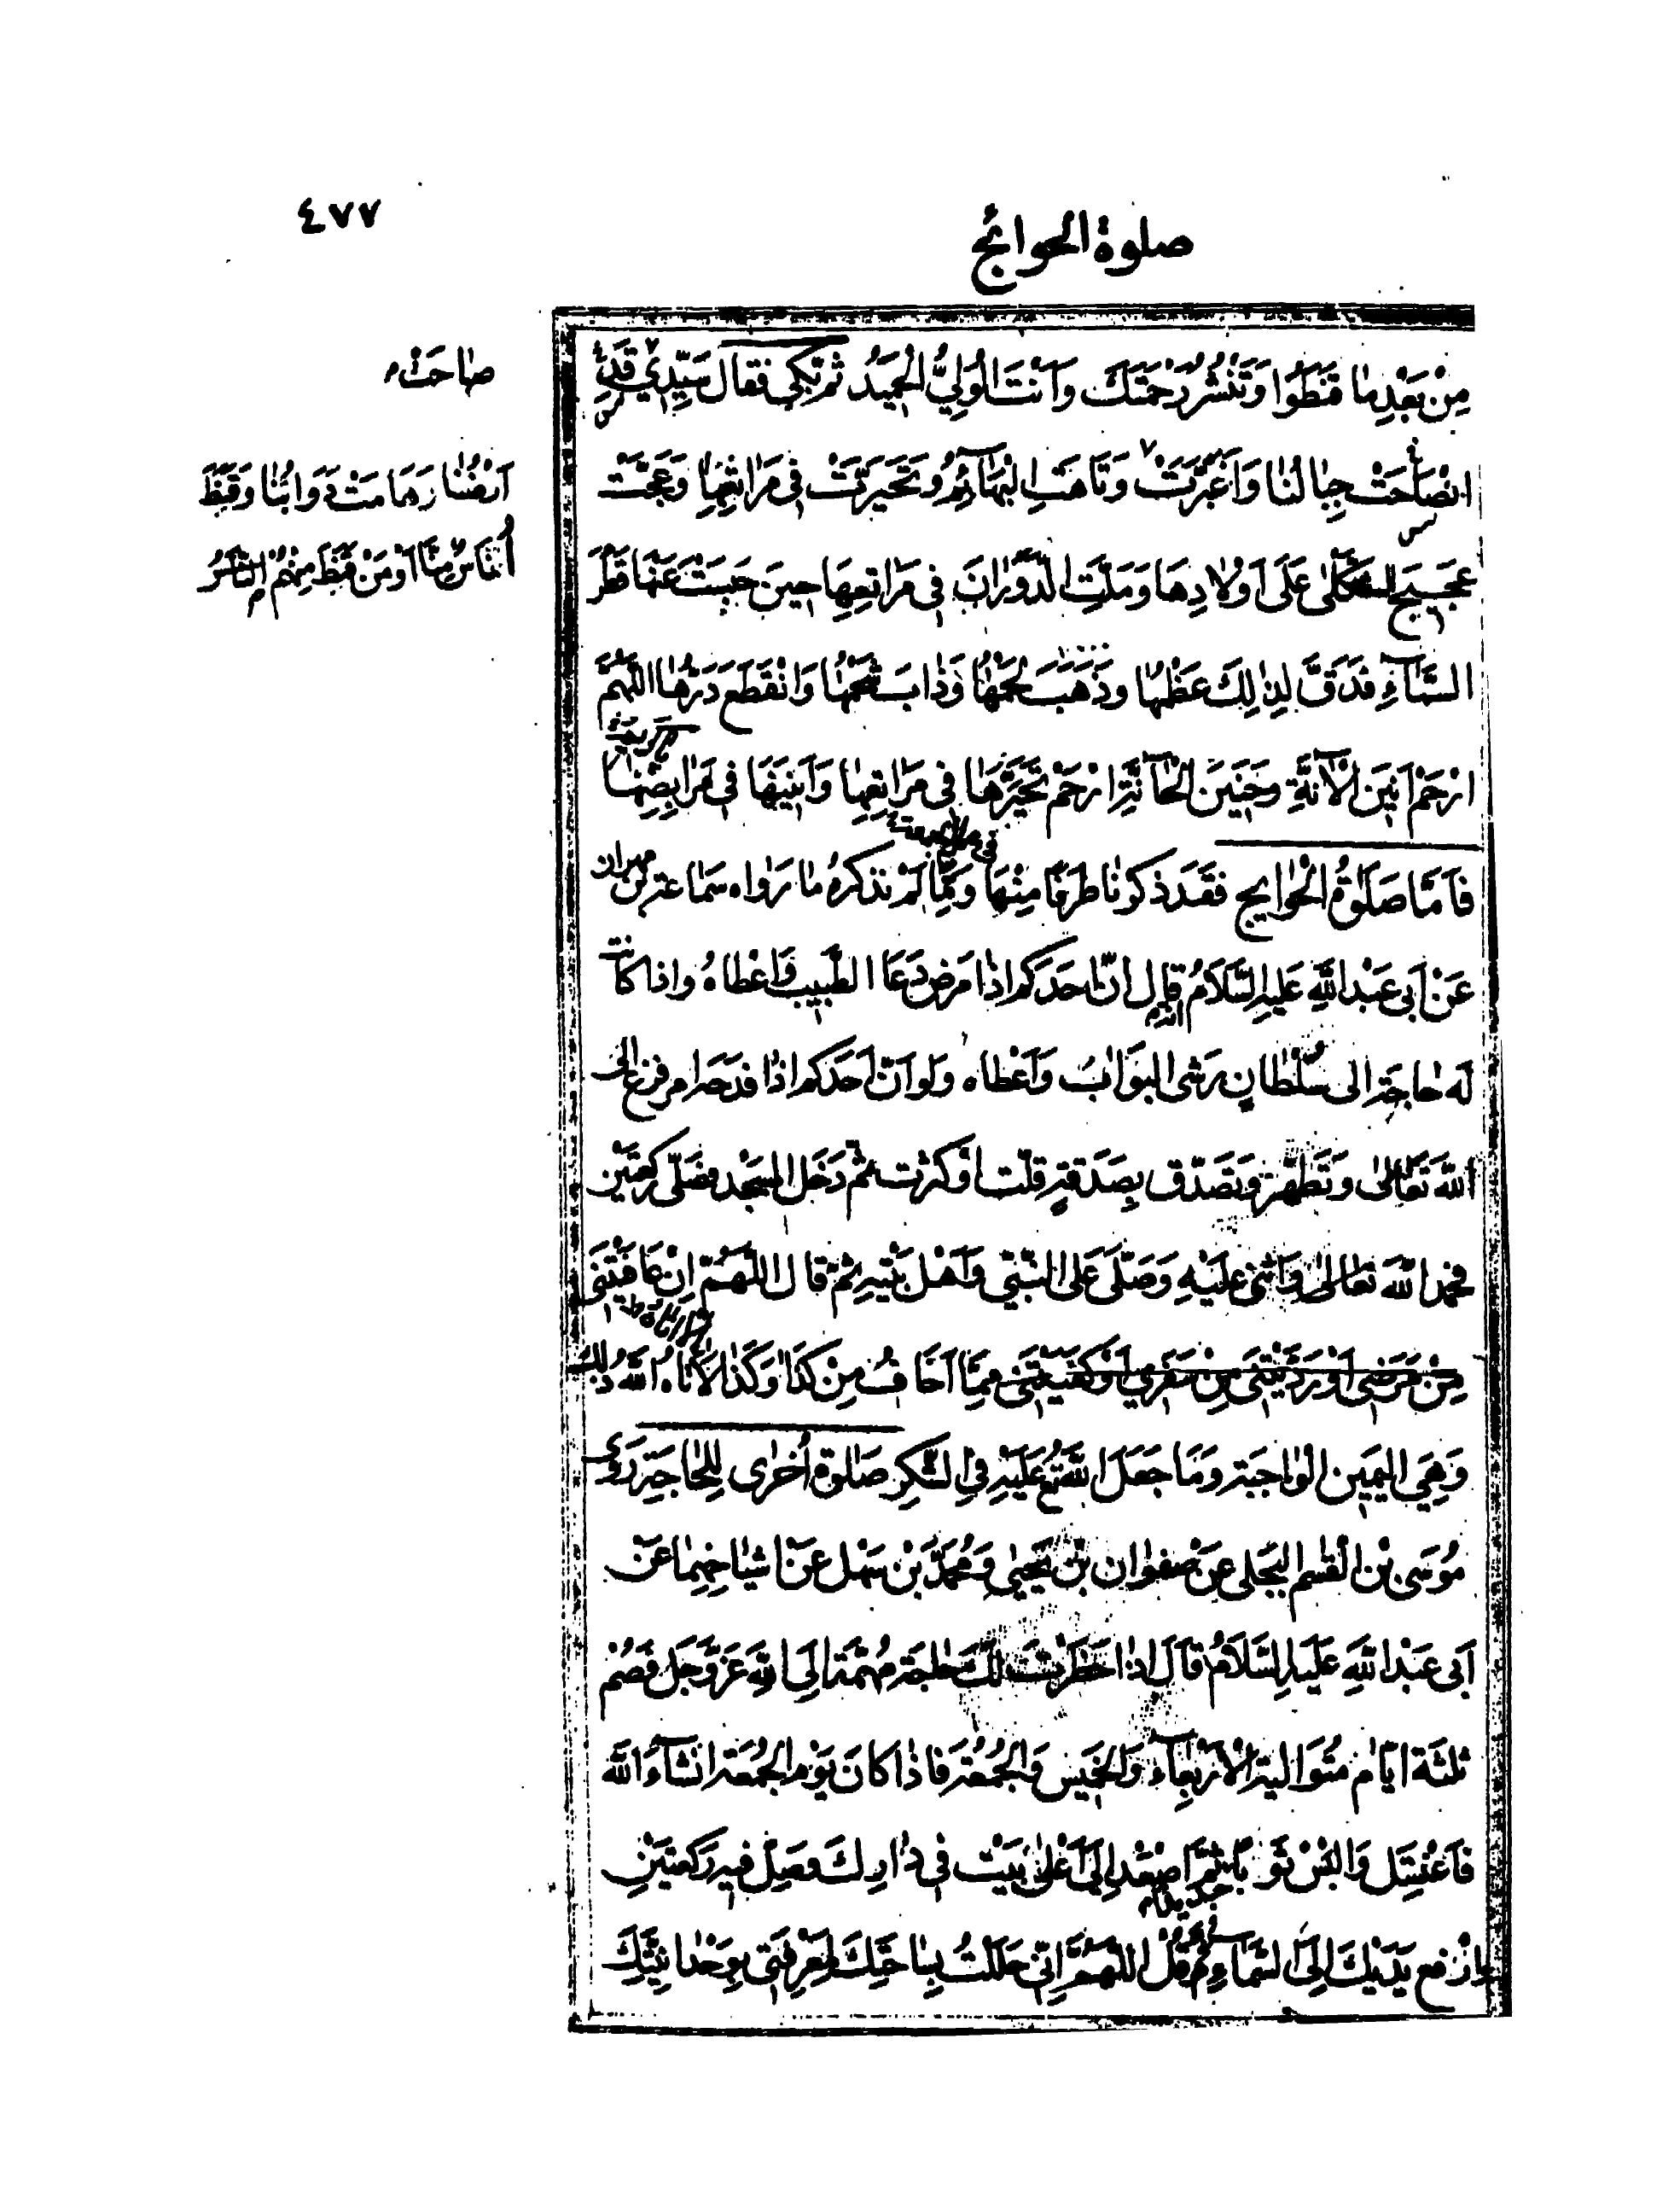 ٤٧٧
صلوة الحوائج
مِنْ بَعْدِ مٰا قَنَطُوا وَتَنْشُرُ رَحْمَتَكَ وَاَنْتَ الْوَلِيُّ الْحَمِيدُ ثم بَكى فقال سَيِّدِي قَدِ
صٰاحَتْ
انْصٰاحَتْ جِبٰالُنٰا وَاغْبَرَّتْ وَتٰاهَتِ الْبَهٰائِمُ وَتَحَيَّرَتْ فِي مَرٰاتِعِهٰا وَعَجَّتْ
اَرْضُنٰا وَهَامَتْ دَوَابُّنٰا وَقَنَطَ
عَجِيجَ الثَّكْلىٰ عَلَى اَوْلٰادِهَا وَمَلَّتِ الدَّوَرٰانَ فِي مَرٰاتِعِهَا حِينَ حَبَسْتَ عَنْهَا قَطْرَ
اُنٰاسٌ مِنَّا اَوْ مَنْ قَنَطَ مِنْهُمْ النَّاسُ
السَّمٰآءِ فَدَقَّ لِذٰلِكَ عَظْمُهٰا وَذَهَبَ لَحْمُهٰا وَذٰابَ شَحْمُهٰا وَانْقَطَعَ دَرُّهٰا اللّٰهُمَّ
ارْحَمْ اَنِينَ الْاٰنَّةِ وَحَنِينَ الْحٰآنَّةِ ارْحَمْ تَحَيُّرَهٰا فِي مَرٰاتِعِهٰا وَاَنِينَهَا فِي مَرٰابِضِهٰا
فَاَمَّا صَلَوةُ الْحَوٰايِجِ فَقَدْ ذكرنٰا طرفًا مِنْهَا وَمِمَّا لَمْ نذكرهُ مٰا رَوٰاه سَمٰاعة بن مهران
عَنْ اَبى عَبْدِ اللّٰهِ عَلَيهِ السَّلَامُ قال انّ احَدَكم اذٰا مَرض دَعَا الطَّبِيب وَاعْطاهُ واذا كانت
لَه حٰاجَة الى سُلْطٰانٍ رَشى البَوّابَ وَاَعْطاه ولَو انّ اَحَدَكم اذٰا فدحه امر فزع الى
اللّٰهِ تَعٰالىٰ وَتَطَهَّرَ وَتَصَدّق بِصَدَقةٍ قلّت اَوْ كثُرت ثُمّ دَخَلَ المسْجِد فصَلّى ركعَتَيْن
فحمد اللّٰه تعٰالىٰ وَاَثنى عَلَيْهِ وَصَلّىٰ عَلَى النَّبِيّ وَاَهْل بَيْتِهِ ثمّ قال اللّٰهُمَّ اِنْ عَافَيْتَنِي
مِنْ مَرَضِي اَوْ رَدَدْتَنِي مِنْ سَفَرِي اَوْ كَفَيْتَنِي مِمَّا اَخٰافُ مِنْ كَذٰا وَكَذٰا لَاٰتاهُ اللّٰهُ ذٰلِكَ
وَهِيَ اليَمِين الْوٰاجِبَة وَمَا جَعَلَ اللّٰه تع عَلَيْهِ فِي الشّكرِ صَلوة اُخْرٰى لِلْحٰاجَةِ رَوٰى
مُوسَى بْن الْقٰسِم البَجَلى عَنْ صَفوٰان بْن يَحيىٰ وَمُحَمَّدِ بْن سَهْل عَنْ اَشيٰاخِهِمٰا عَنْ
اَبى عَبْدِ اللّٰهِ عَلَيهِ السَّلَامُ قالَ اذٰا حَضَرَتْ لَكَ حٰاجَة مُهِمّة اِلَى اللّٰهِ عَزَّوَجَل فَصُمْ
ثلٰثَة ايّام مُتَوٰالية الْاَرْبِعٰآءِ وَالخَمِيس وَالجُمُعَة فَاذٰا كٰانَ يَوْم الجُمُعَة انشٰآءَ اللّٰه
فَاغْتَسِل وَالْبَسْ ثَوبًا ثُمَّ اصْعَد اِلَى اَعْلىٰ بَيْت فِي دٰارِك وصَلِّ فِيهِ رَكعتَيْنِ
جديدا
وارْفع يَدَيْكَ اِلَى السَّمٰاءِ ثم قُل اللّٰهُمَّ اِنِّي حَلَلْتُ بِسٰاحَتِكَ لِمَعْرِفَتي بِوَحْدٰانِيَّتِكَ